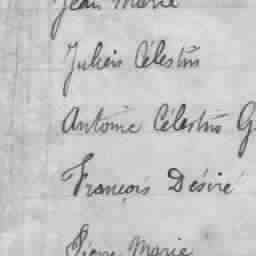 Jean Marie
Julien Célestin
Antoine Célestin G
François Désiré
Pierre Marie